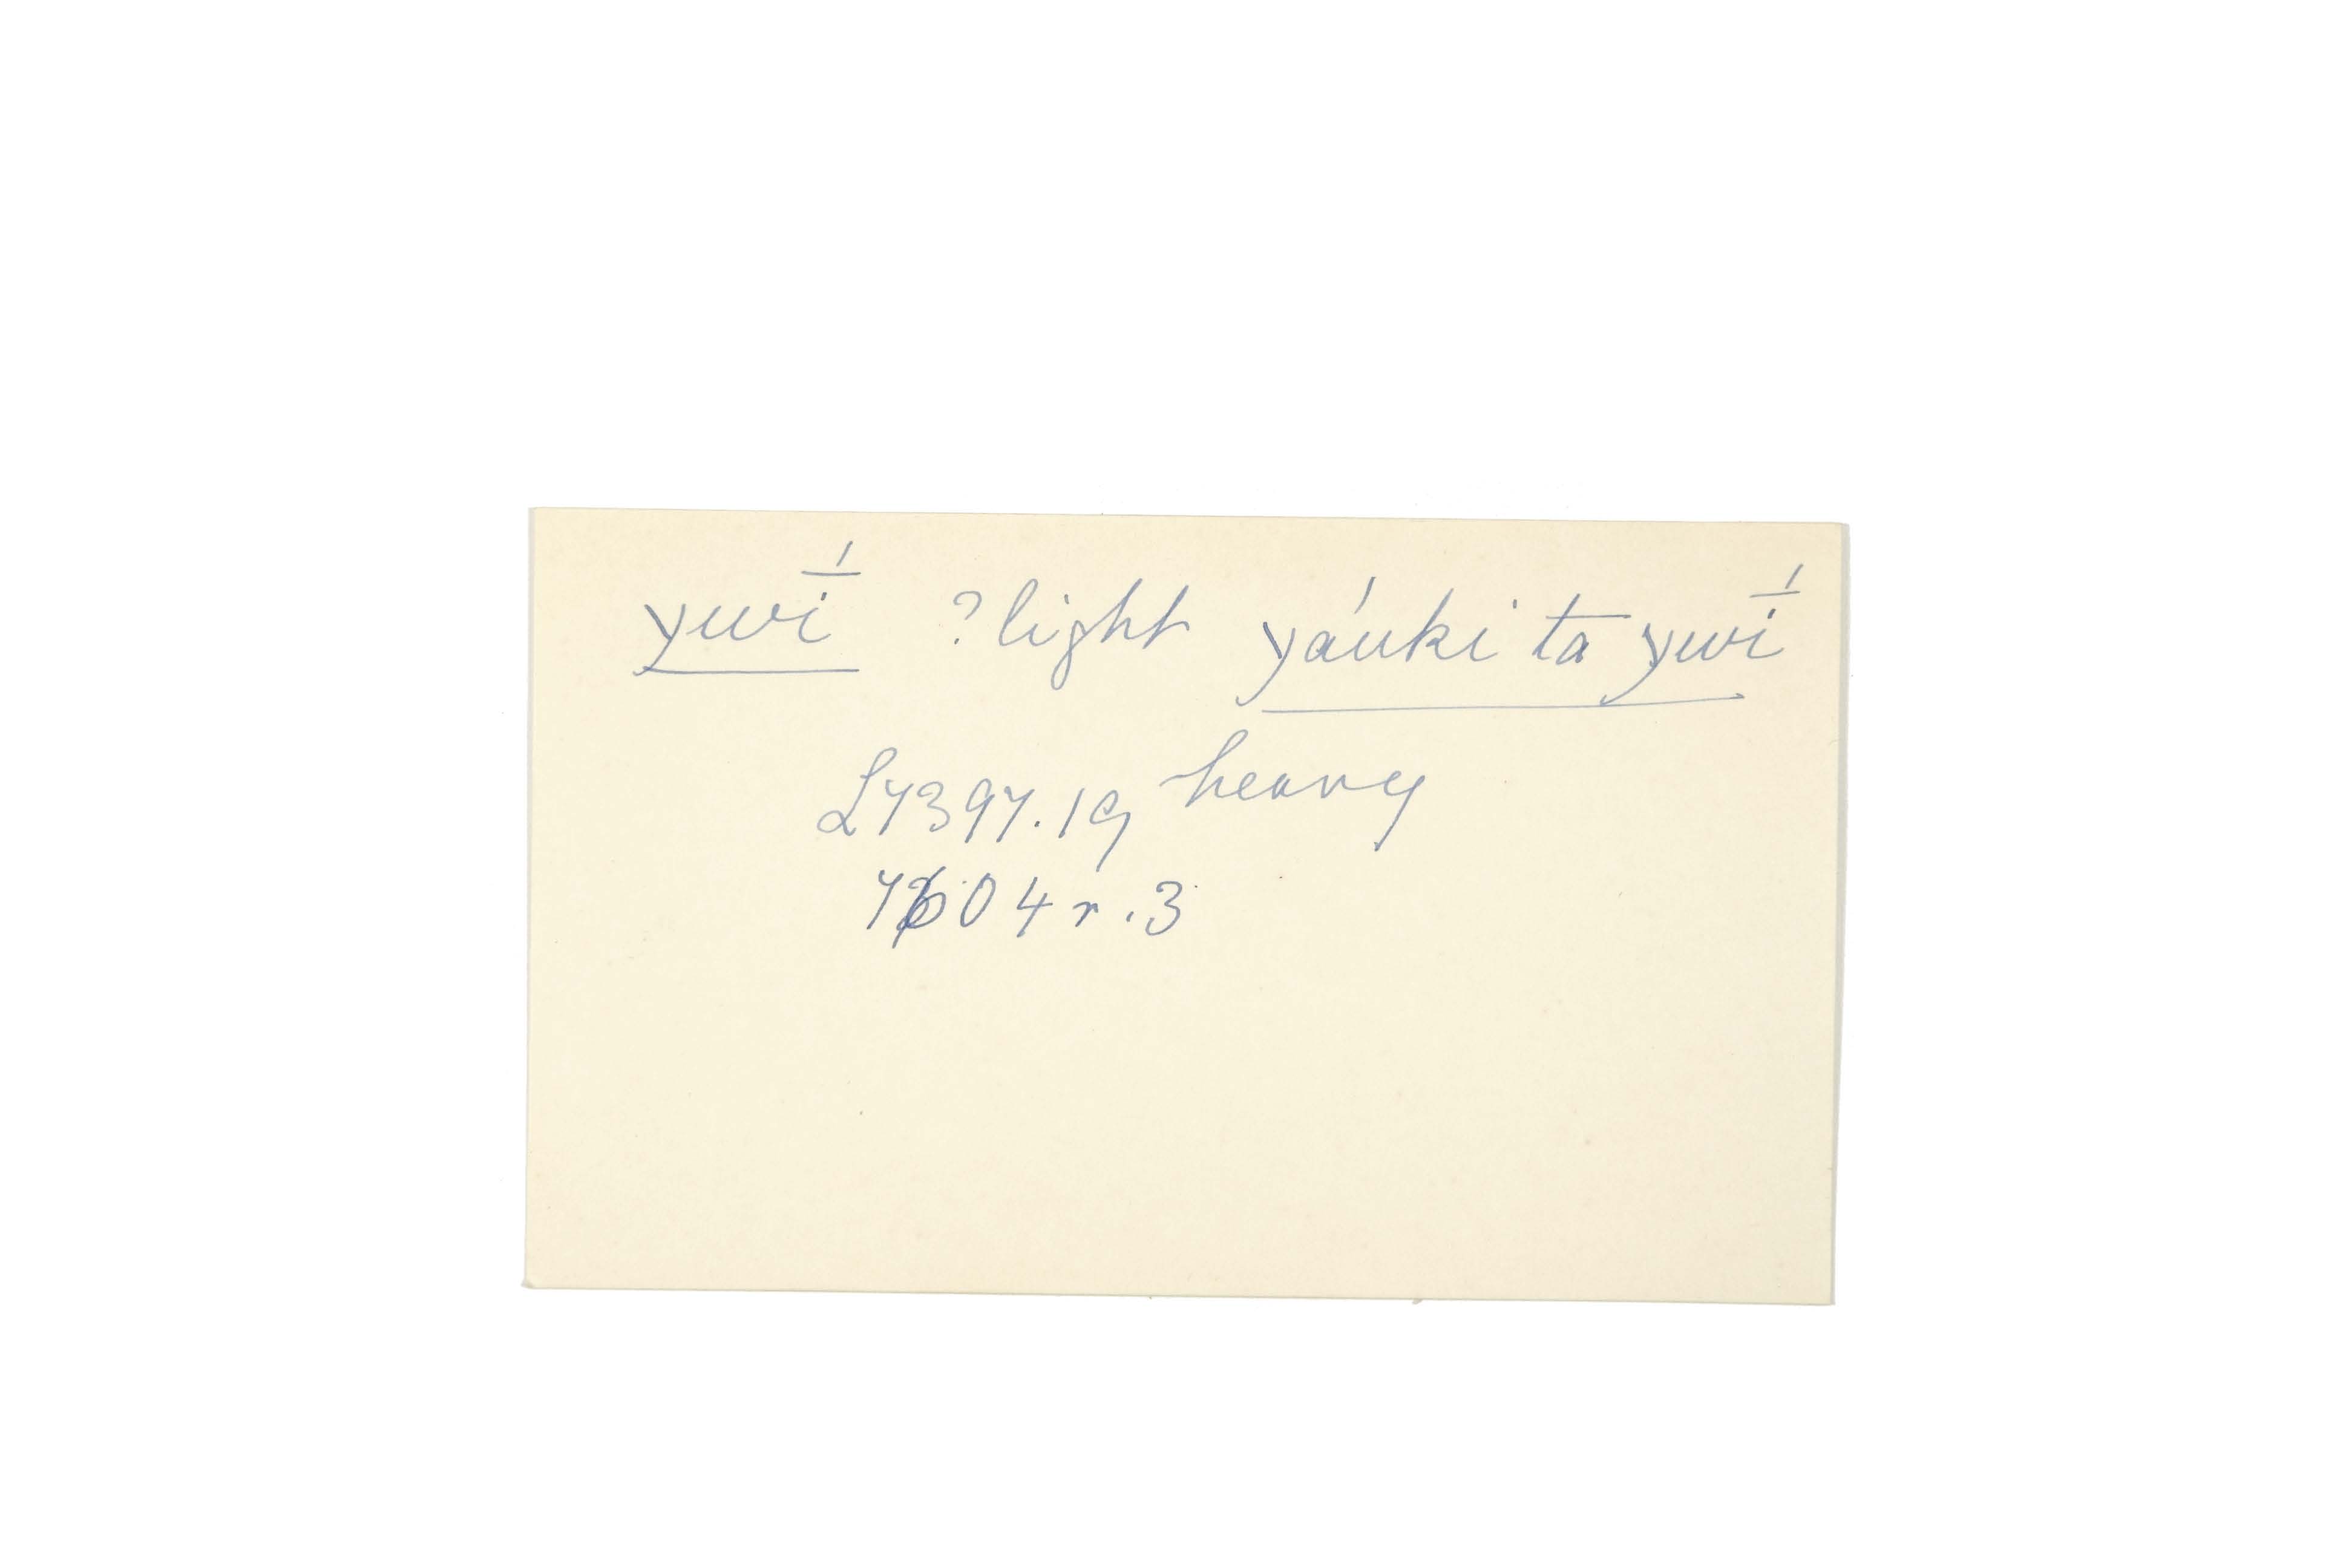 yuwī́ ?light yáuki ta yuwī́
L7397.19 heavy
7604r.3